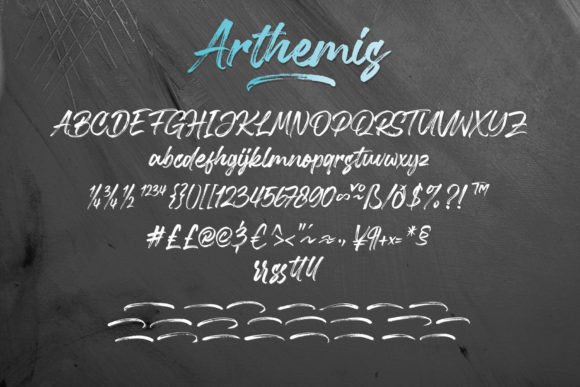 Arthemis
ABCDEFGHIJKLMNOPQRSTUVWXYZ
abcdefhgijklmnopqrstuvwxyz
¼¾½ 1234 {}()[]1234567890 ß/$%?!™
#££@€><"~≈.,¥¶+x=*§
rrssttll